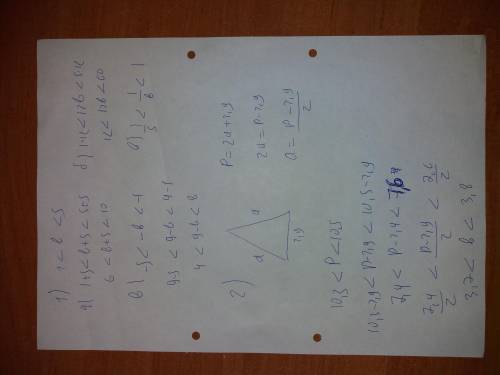 1) 1 < b < 5
а) 1+5 < b+5 < 5+5 б) 1·12 < 12b < 5·12
6 < b+5 < 10 12 < 12b < 60
в) -5 < -b < -1 г) 1/5 < 1/b < 1
9-5 < 9-b < 9-1
4 < 9-b < 8
2) a a 2,9
P=2a+2,9
2a=P-2,9
a=(P-2,9)/2
10,3 < P < 10,5
10,3-2,9 < P-2,9 < 10,5-2,9
7,4 < P-2,9 < 7,6
7,4/2 < (P-2,9)/2 < 7,6/2
3,7 < b < 3,8